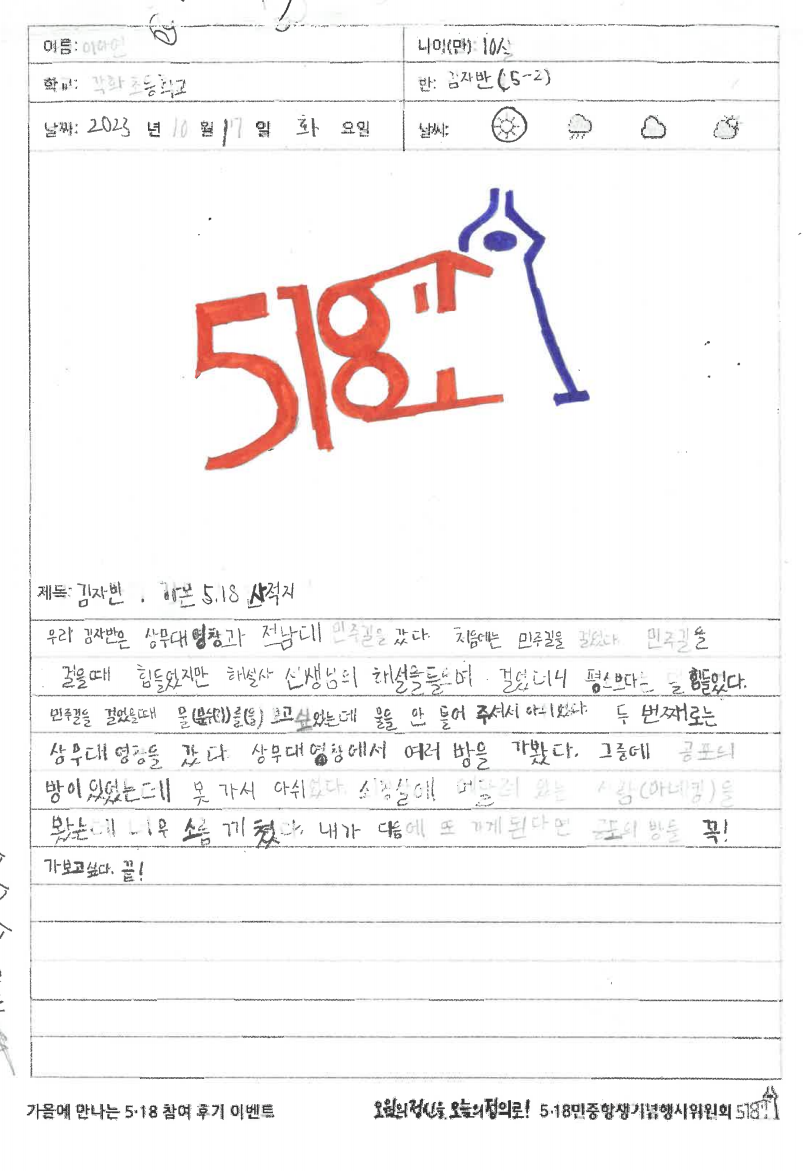 이름: 이다인
나이(만): 10살
학교: 각화초등학교
반: 김자반(5-2)
날짜: 2023 년 10 월 17 일 화 요일
날씨:
518
제목: 김자반, 가본 5.18 사적지
우리 김자반은 상무대 영창과 전남대 민주길을 갔다. 처음에는 민주길을 걸었다. 민주길을
걸을때 힘들었지만 해설사 선생님의 해설을들으며 걸었더니 평소보다는 덜 힘들었다.
민주길을 걸었을때 물(분수)를(을) 보고싶었는데 물을 안 틀어 주셔서 아쉬웠다. 두 번째로는
상무대 영창을 갔다. 상무대 영창에서 여러 방을 가봤다. 그중에 공포의
방이 있었는데 못 가서 아쉬웠다. 매달려 있는 사람(마네킹)을
봤는데 너무 소름 끼쳤다. 내가 다음에 또 가게 된다면 공포의 방을 꼭!
가보고싶다. 끝!
가을에 만나는 5·18 참여 후기 이벤트
오월의 정신을 오늘의 정의로! 5·18민중항쟁기념행사위원회 518